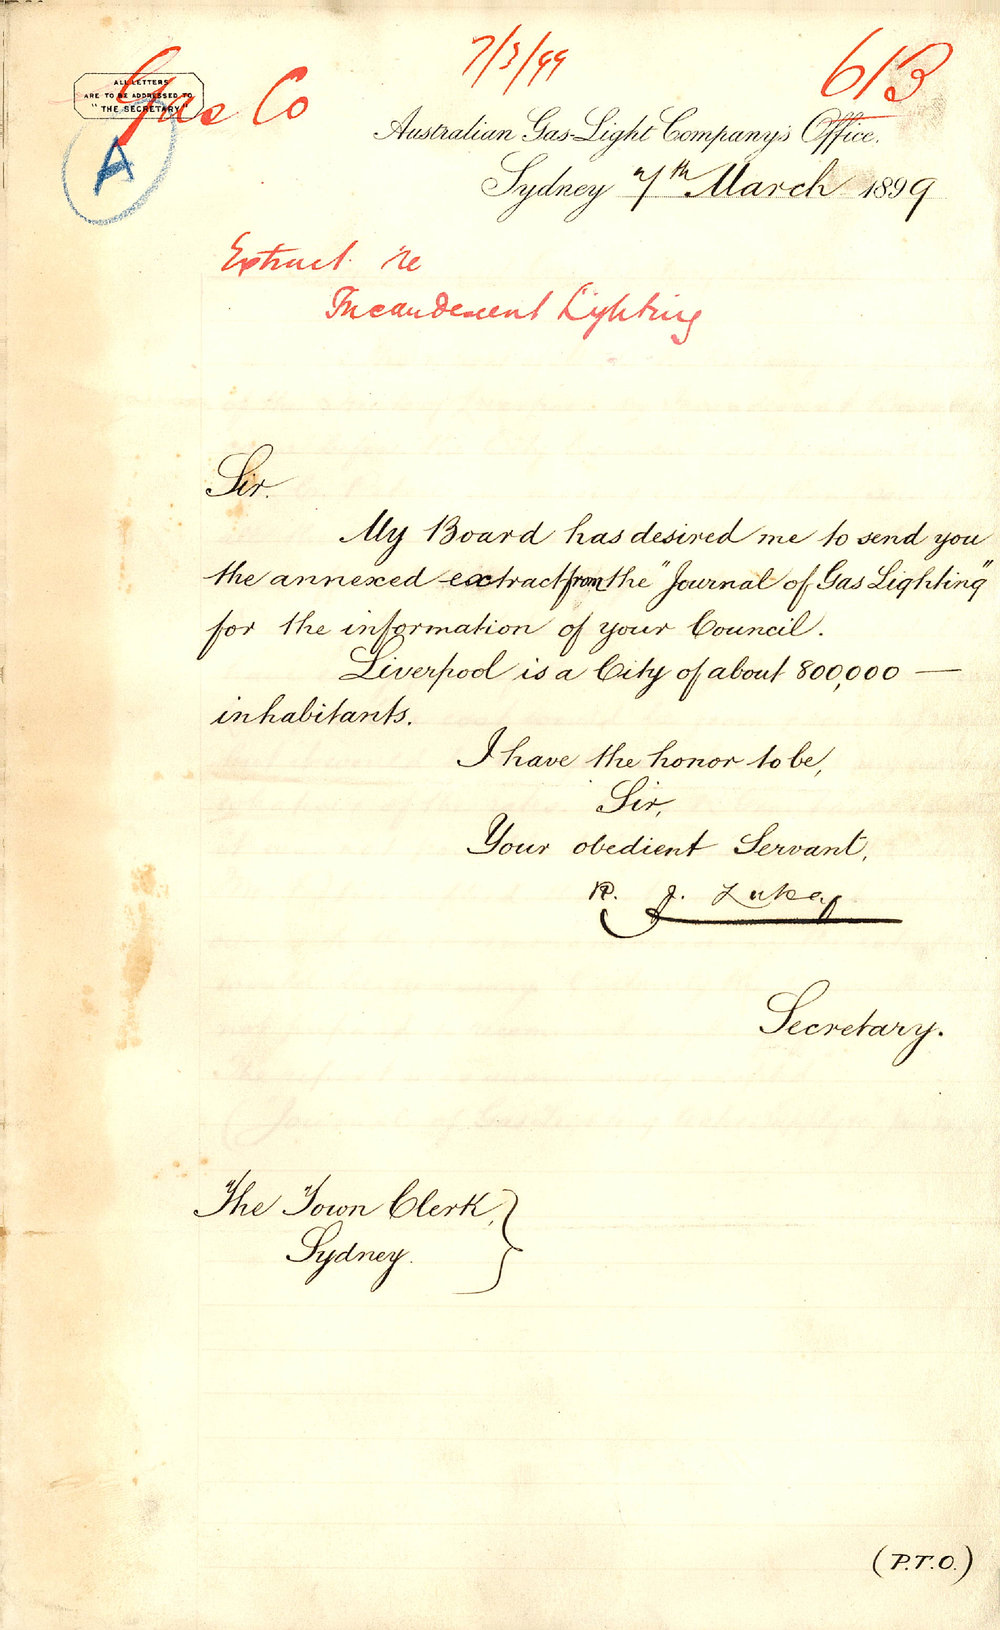 7/3/99
613
Gas Co
ALL LETTERS
ARE TO BE ADDRESSED TO
"THE SECRETARY"
A
Australian Gas-Light Company's Office.
Sydney 7th March 1899
Extract re
Incandescent Lighting
Sir.
My Board has desired me to send you
the annexed extract from the "Journal of Gas Lighting"
for the information of your Council.
Liverpool is a City of about 800,000 —
inhabitants.
I have the honor to be,
Sir,
Your obedient Servant,
R. J. Lukey
Secretary.
The Town Clerk,
Sydney.
(P.T.O.)